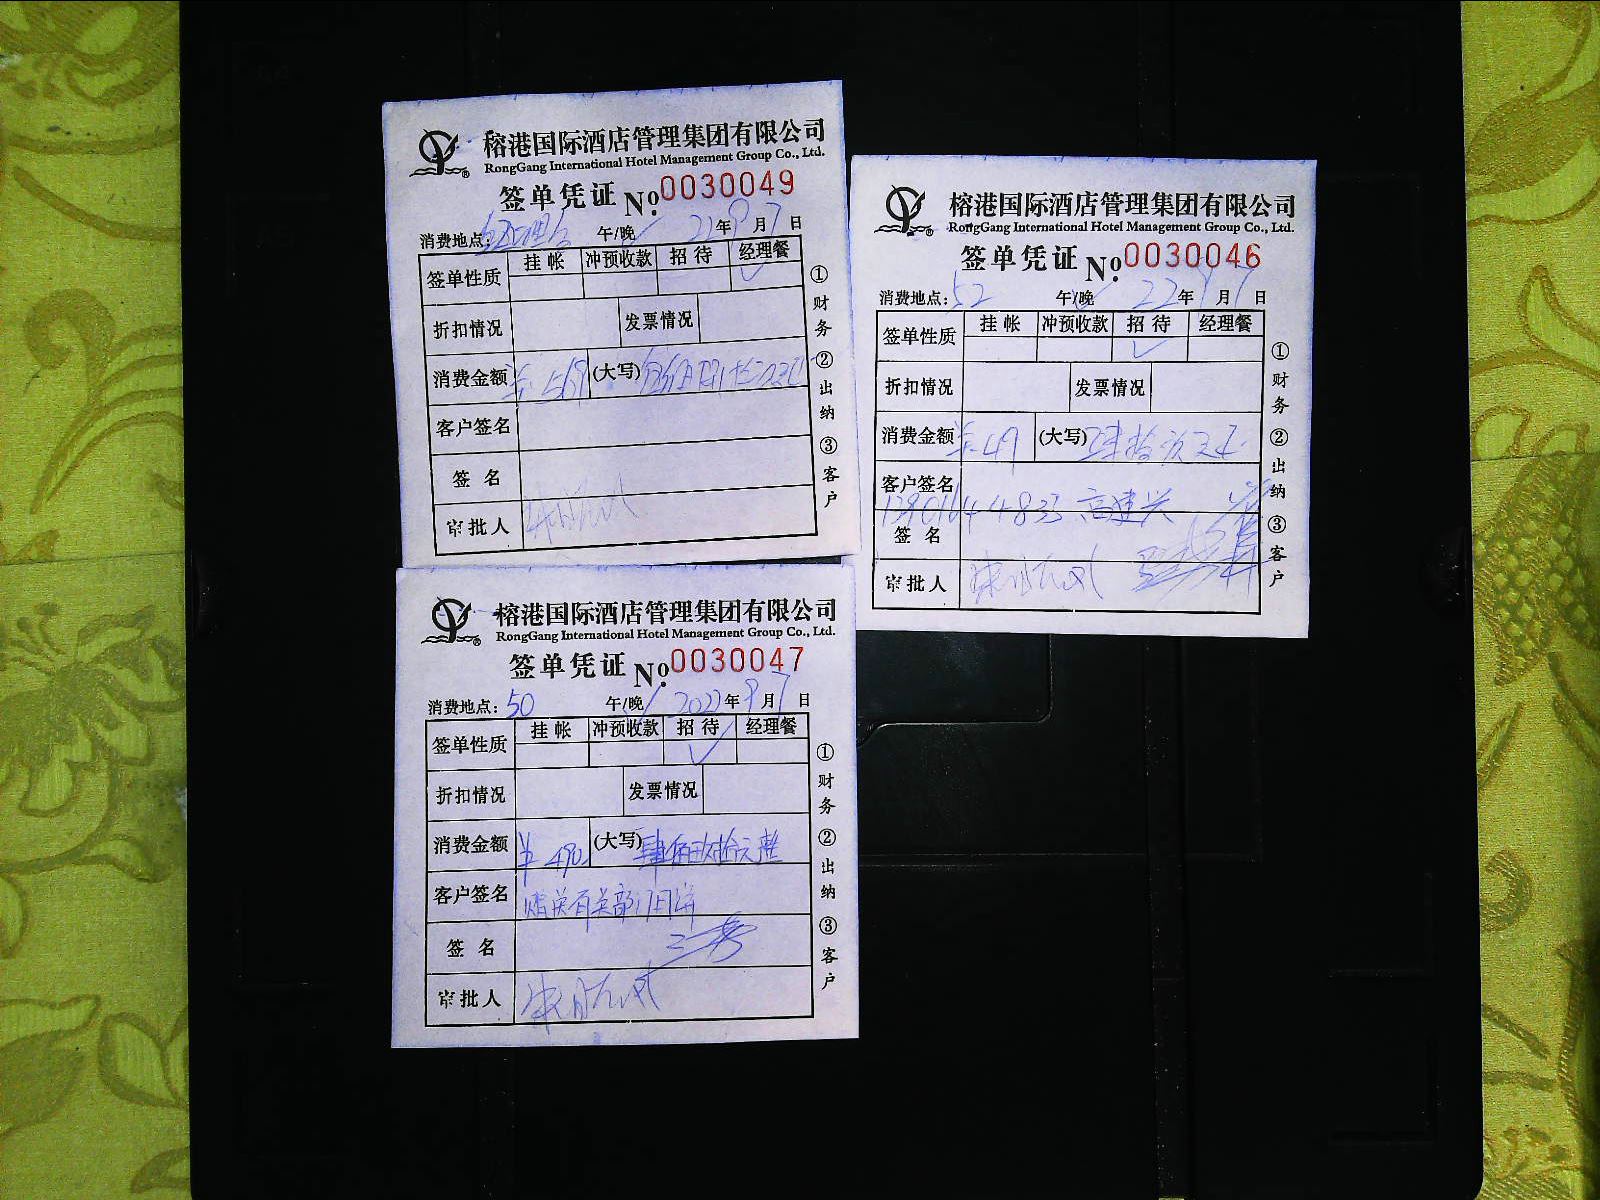 榕港国际酒店管理集团有限公司
RongGang International Hotel Management Group Co., Ltd.
签单凭证 No. 0030049
消费地点: 午/晚 年 9 月 7 日
签单性质 挂帐 冲预收款 招待 经理餐
折扣情况 发票情况
消费金额 (大写)
客户签名
签名
审批人
① 财务 ② 出纳 ③ 客户
榕港国际酒店管理集团有限公司
RongGang International Hotel Management Group Co., Ltd.
签单凭证 No. 0030046
消费地点: 52 午/晚 22 年 9 月 7 日
签单性质 挂帐 冲预收款 招待 经理餐
折扣情况 发票情况
消费金额 ¥49 (大写) 肆拾玖元正
客户签名
13901644833 高建兴
签名
审批人
① 财务 ② 出纳 ③ 客户
榕港国际酒店管理集团有限公司
RongGang International Hotel Management Group Co., Ltd.
签单凭证 No. 0030047
消费地点: 50 午/晚 2022 年 9 月 7 日
签单性质 挂帐 冲预收款 招待 经理餐
折扣情况 发票情况
消费金额 ¥490. (大写) 肆佰玖拾元整
客户签名 有关部门月饼
签名
审批人
① 财务 ② 出纳 ③ 客户